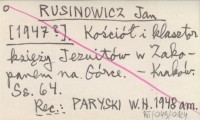 RUSINOWICZ Jan
[1947?]. Kościół i klasztor
księży Jezuitów w Zako-
panem na Górce. - Kraków.
Ss. 64.
Rec.: PARYSKI W.H. 1948 am.